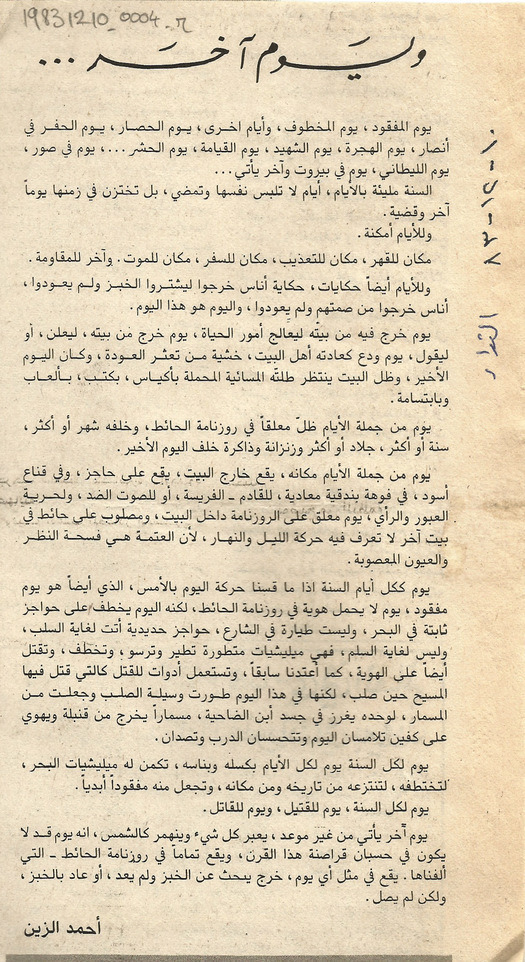 19831210_0004_م
وليَوم آخَر ...
يوم المفقود ، يوم المخطوف ، وأيام اخرى ، يـوم الحصار ، يـوم الحفـر في
أنصار ، يوم الهجرة ، يوم الشهيد ، يوم القيامة ، يوم الحشر ...، يوم في صور ،
يوم الليطاني ، يوم في بيروت وآخر يأتي...
السنة مليئة بالأيام ، أيام لا تلبس نفسها وتمضي ، بل تختزن في زمنها يوماً
آخر وقضية .
وللأيام أمكنة .
مكان للقهر ، مكان للتعذيب ، مكان للسفر ، مكان للموت . وآخر للمقاومة .
وللأيام أيضاً حكايات ، حكاية أناس خرجوا ليشتـروا الخبـز ولـم يعـودوا ،
أناس خرجوا من صمتهم ولم يعودوا ، واليوم هو هذا اليوم .
يوم خرج فيه من بيته ليعالج أمور الحياة ، يوم خرج من بيته ، ليعلن ، أو
ليقول ، يوم ودع كعادته أهل البيت ، خشية مـن تعثـر العـودة ، وكـان اليـوم
الأخير ، وظل البيت ينتظر طلته المسائية المحملة بأكياس ، بكتـب ، بـألعـاب
وبابتسامة .
يوم من جملة الأيام ظلّ معلقاً في روزنامة الحائط ، وخلفه شهر أو أكثر ،
سنة أو أكثر ، جلاد أو أكثر وزنزانة وذاكرة خلف اليوم الأخير .
يوم من جملة الأيام مكانه ، يقع خارج البيت ، يقع على حاجز ، وفي قناع
أسود ، في فوهة بندقية معادية ، للقادم ـ الفريسة ، أو للصوت الضد ، ولحريـة
العبور والرأي ، يوم معلق على الروزنامة داخل البيت ، ومصلوب على حائط في
بيت آخر لا تعرف فيه حركة الليـل والنهـار ، لأن العتمـة هـي فسحـة النظـر
والعيون المعصوبة .
يوم ككل أيام السنة اذا ما قسنا حركة اليوم بالأمس ، الذي أيضاً هو يوم
مفقود ، يوم لا يحمل هوية في روزنامة الحائط ، لكنه اليوم يخطف على حواجز
ثابتة في البحر ، وليست طيارة في الشارع ، حواجز حديدية أتت لغاية السلب ،
وليس لغاية السلم ، فهي ميليشيات متطورة تطير وترسو ، وتخطف ، وتقتل
أيضاً على الهوية ، كما أعتدنا سابقاً ، وتستعمل أدوات للقتل كالتي قتل فيها
المسيح حين صلب ، لكنها في هذا اليوم طـورت وسيلـة الصلـب وجعلـت مـن
المسمار ، لوحده يغرز في جسد أبن الضاحية ، مسماراً يخرج من قنبلة ويهوي
على كفين تلامسان اليوم وتتحسسان الدرب وتصدان .
يوم لكل السنة يوم لكل الأيام بكسله وبناسه ، تكمن له ميليشيات البحر ،
لتختطفه ، لتنتزعه من تاريخه ومن مكانه ، وتجعل منه مفقوداً أبدياً .
يوم لكل السنة ، يوم للقتيل ، ويوم للقاتل .
يوم آخر يأتي من غير موعد ، يعبر كل شيء وينهمر كالشمس ، انه يوم قـد لا
يكون في حسبان قراصنة هذا القرن ، ويقع تماماً في روزنامة الحائط ـ التي
ألفناها . يقع في مثل أي يوم ، خرج يبحث عن الخبز ولم يعد ، أو عاد بالخبز ،
ولكن لم يصل .
أحمد الزين
النداء ١٠-١٢-٨٣